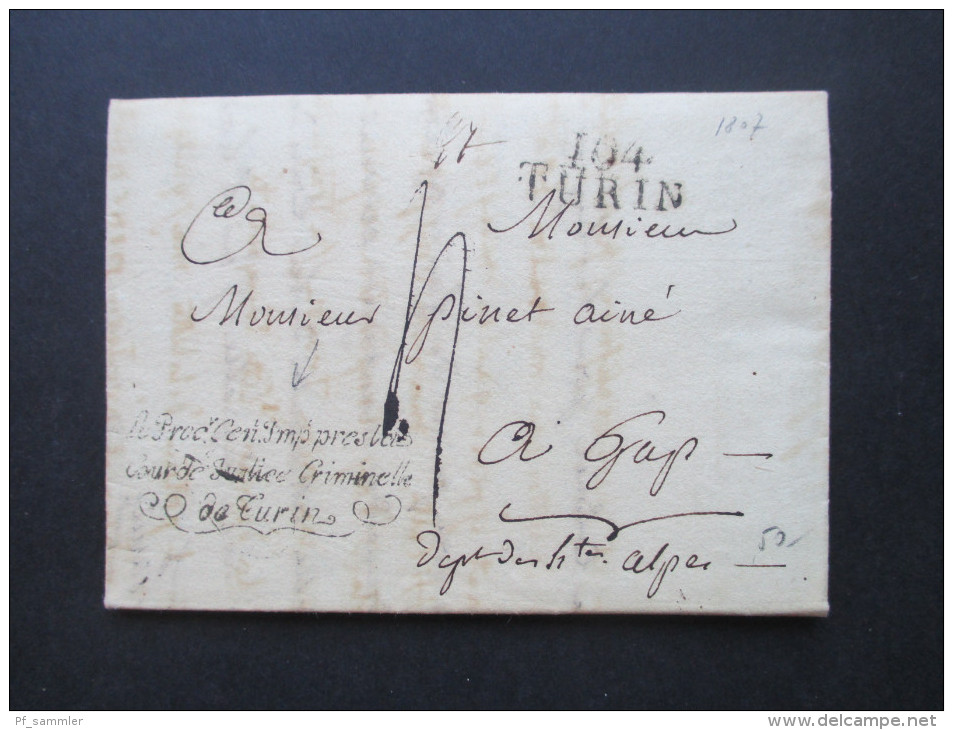 1807
104
TURIN
A Monsieur
Monsieur pinet ainé
le Procr. Gén. Imp. près la
Cour de Justice Criminelle
de Turin
a Gap
Dept des htes alpes
50
Pf_sammler
http://www.delcampe.net